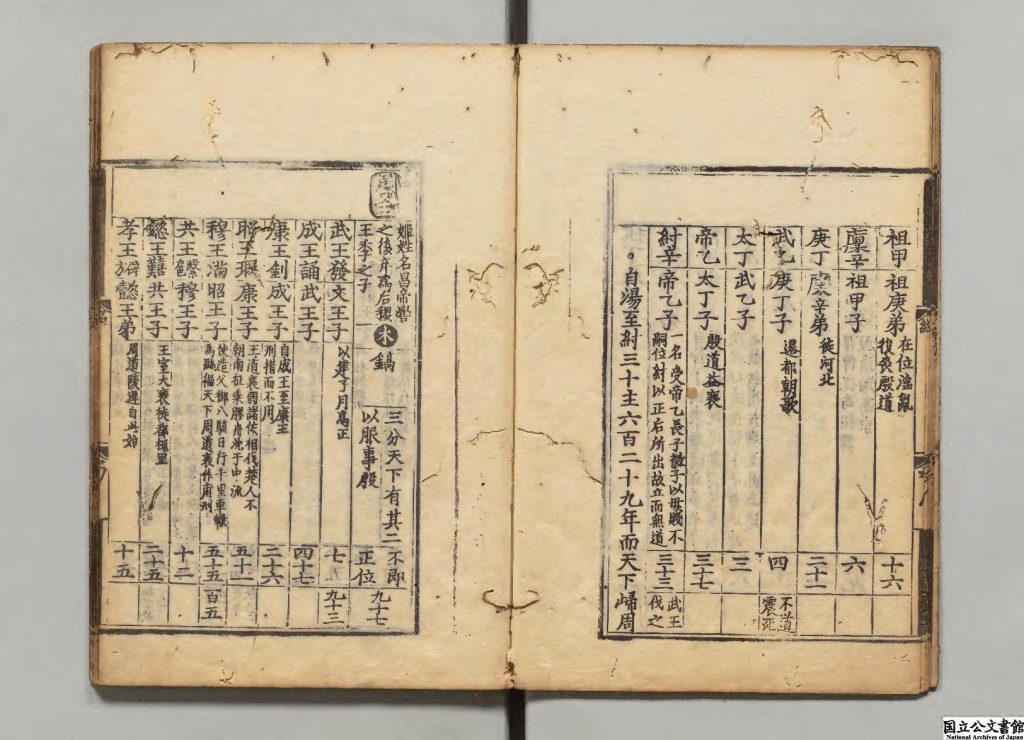 祖甲 祖庚弟 在位淫亂
復衰殷道 十六
廩辛 祖甲子 六
庚丁 廩辛弟 徙河北 二十一
武乙 庚丁子 遷都朝歌 四 不道
震死
太丁 武乙子 三
帝乙 太丁子 殷道益衰 三十七
紂辛 帝乙子 一名受帝乙長子微子以母賤不
嗣位紂以正后所出故立而無道 三十三 武王
伐之
。自湯至紂三十主六百二十九年而天下歸周
姬姓名昌帝嚳
之後弃爲后稷
王季之子 木 鎬 三分天下有其二
以服事殷 不即
正位 九十七
武王發文王子 以建子月爲正 七 九十三
成王誦武王子 四十七
康王釗成王子 自成王至康王
刑措而不用 二十六
昭王瑕康王子 王道衰弱諸侯相伐楚人不
朝南征乘膠舟沈于中流 五十一
穆王滿昭王子 使造父御八駿日行千里車轍
馬跡徧天下周道衰作甫刑 五十五 百五
共王繄扈穆王子 十二
懿王囏共王子 王室大衰徙 二十五
孝王辟方懿王弟 周道陵遲自此始 十五
国立公文書館
National Archives of Japan